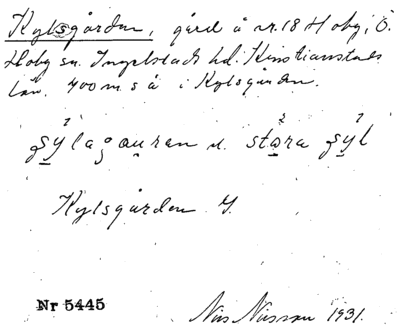 Kylsgården, gård å nr. 18 Hoby, Ö.
Hoby sn. Ingelstads hd. Kristianstads
län. 700 m. s å i Kylsgården.
stora
Kylsgården G.
Nr 5445
Nils Nilsson 1931.